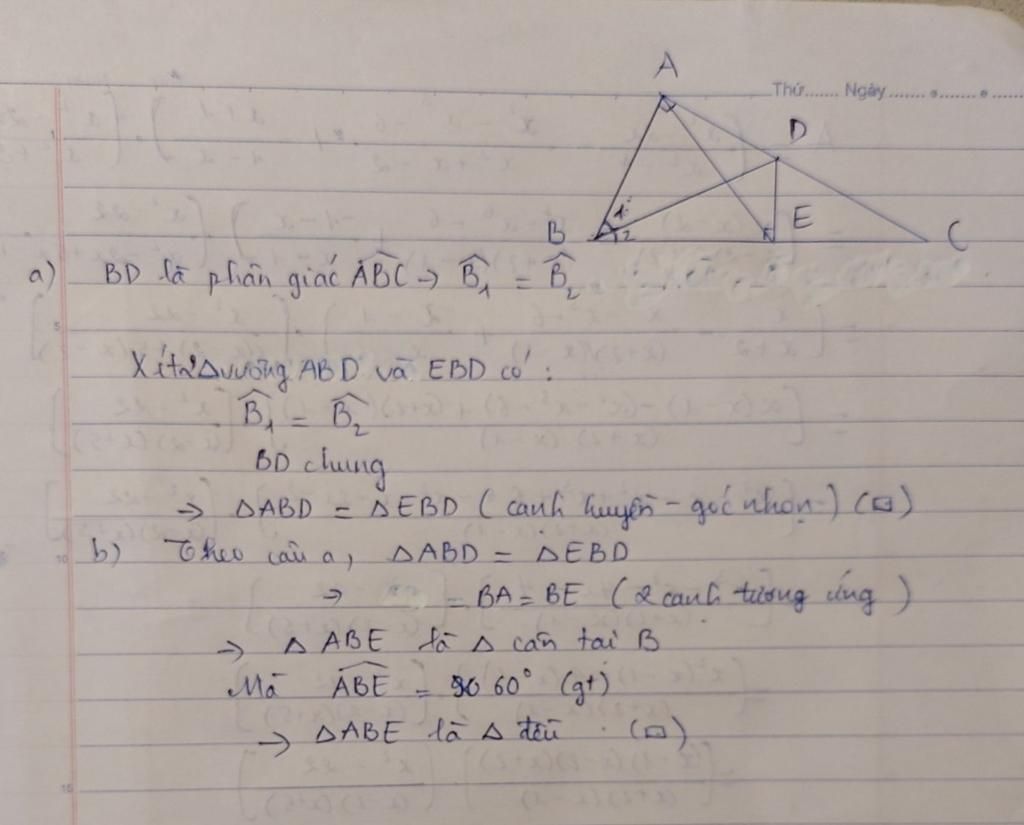 Thứ....... Ngày ....... . ....... . ......
A
D
B 1 2 E C
a) BD là phân giác ABC → B₁ = B₂
5
Xét 2 Δ vuông ABD và EBD có :
B₁ = B₂
BD chung
→ ΔABD = ΔEBD ( cạnh huyền - góc nhọn ) (□)
10 b) Theo câu a, ΔABD = ΔEBD
→ = BA = BE ( 2 cạnh tương ứng )
→ Δ ABE là Δ cân tại B
Mà ABE = 60° (gt)
→ ΔABE là Δ đều . (□)
15